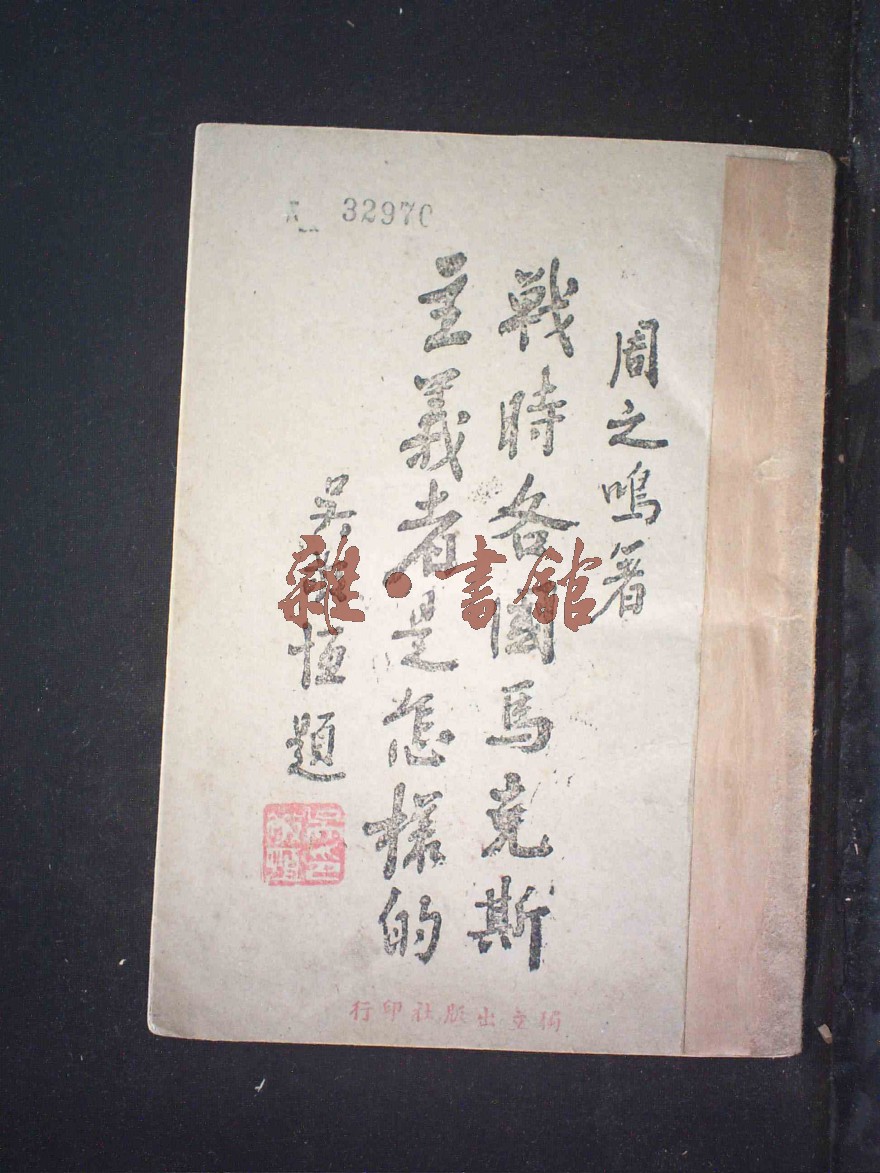 32970
周之鳴著
戰時各国馬克斯
主義者是怎樣的
吳敬恆題
獨立出版社印行
雜·書館